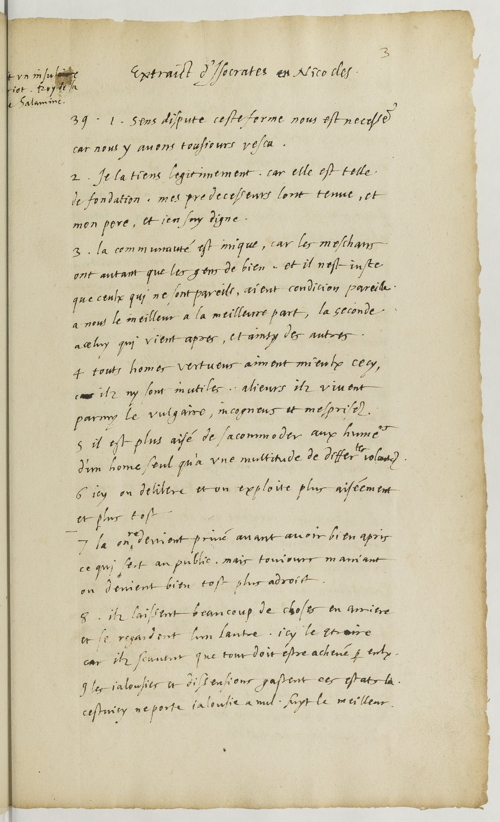 3
Extraict d'Isocrates en Nicocles.
t vn insulaire
riot. Roy de la
Salamine.
39. 1. Sens dispute ceste forme nous est necesse^re
car nous y auons tousiours vescu.
2. Je la tiens legitimement. car elle est telle
de fondation. mes predecesseurs lont tenue, et
mon pere, et ien suy digne.
3. la communauté est inique, car les meschans
ont autant que les gens de bien. et il nest iuste
que ceulx qui ne sont pareils, aient condicion pareille.
a nous le meilleur a la meilleure part, la seconde
a celuy qui vient apres, et ainsy des autres.
4 touts homes vertueux aiment mieulx cecy,
car ilz ny sont inutiles. alieurs ilz viuent
parmy le vulgaire, incogneus et mesprisez.
5 il est plus aisé de saccommoder aux hume^rs
d'un home seul qu'a vne multitude de differ^tes volontez.
6 icy on delibere et on exploite plus aiséement
et plus tost
7 la on deuient priué auant auoir bien apris
ce qui sert au public. mais toviours maniant
on deuient bien tost plus adroit.
8. ilz laissent beaucoup de choses en arriere
et se regardent lun lautre. icy le contraire
car ilz scauent que tout doit estre acheué p eulx.
9 les ialousies et dissensions gastent ces estats la.
cestuicy ne porte ialousie a nul. suyt le meilleur.